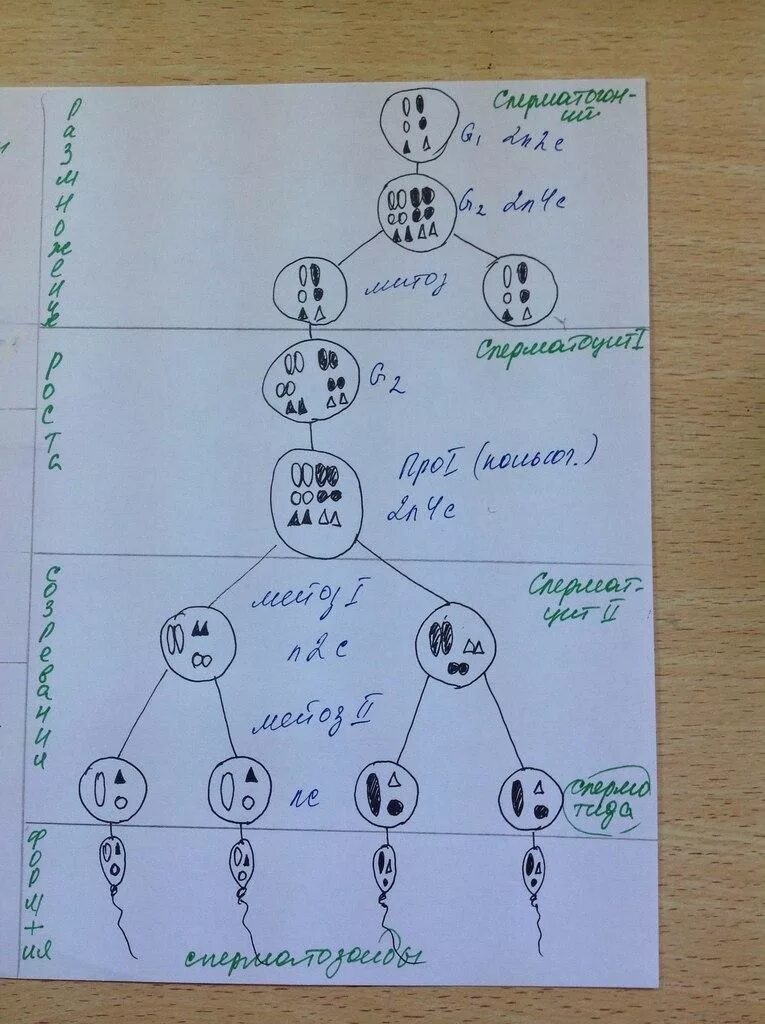 Размножения
Сперматогон-
ий
G₁ 2n2c
G₂ 2n4c
митоз
Роста
Сперматоцит I
G₂
Про I (коньюг.)
2n4c
Созревания
Спермат-
цит II
мейоз I
n2c
мейоз II
nc
сперма
тида
Форм+ия
сперматозоиды